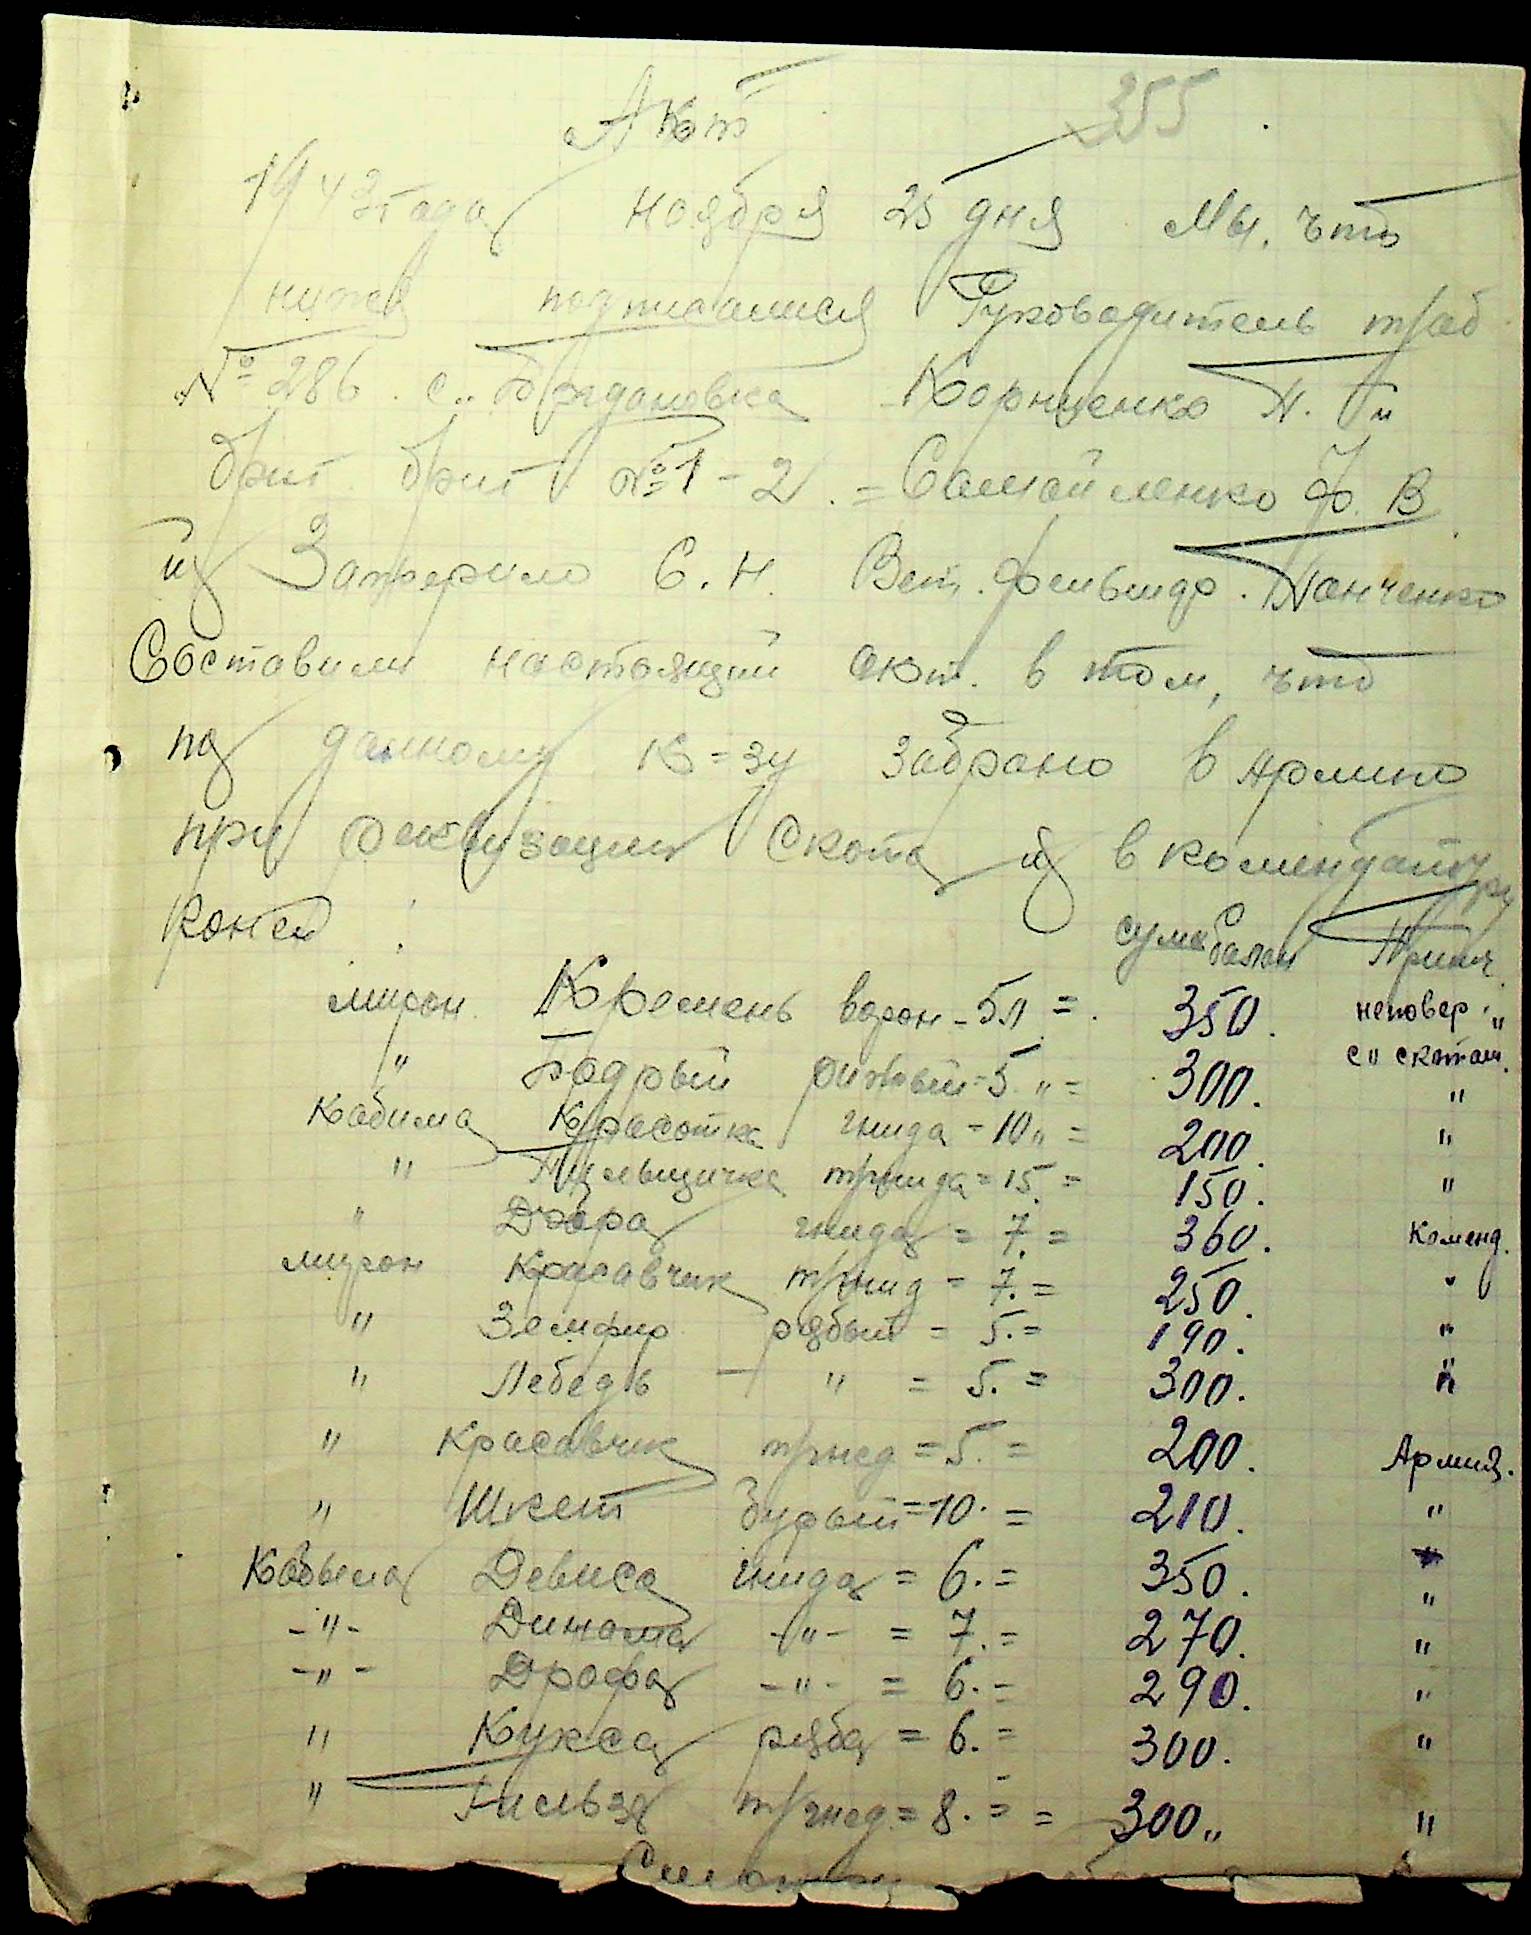 Акт 355
1943 года ноября 25 дня Мы, что
ниже подписалися Руководитель
№ 286. с. Богдановка Корниенко П. Г.
бриг. бриг №1-2. = Самойленко Ф. В
и С. Н. Вет. фельшдр. Панченко
Составили настоящий акт. в том, что
по данному К=зу забрано в Армию
при реквизации Скота и в комендатуру
коней :
сума балан Прим
мирон Кремень ворон - 5 л = 350. неповер.
" Бодрый рижый = 5 " = 300. "
Кабила Красотка гнида - 10 " = 200. "
" = 15. = 150. "
" Дора гнида = 7. = 360. Коменд.
мирон Красавчик т/гнид = 7. = 250. "
" Земфир рябый = 5. = 190. "
" Лебедь - " = 5. = 300. "
" Красавчик т/гнед = 5. = 200. Армия.
" Шкет бурый = 10. = 210. "
Кабыла Девиса гнида = 6. = 350. "
-"- Динома -"- = 7. = 270. "
-"- Драфа -"- = 6. = 290. "
" Кукса ряба = 6. = 300. "
" Гильза т/гнед = 8. = = 300 " "